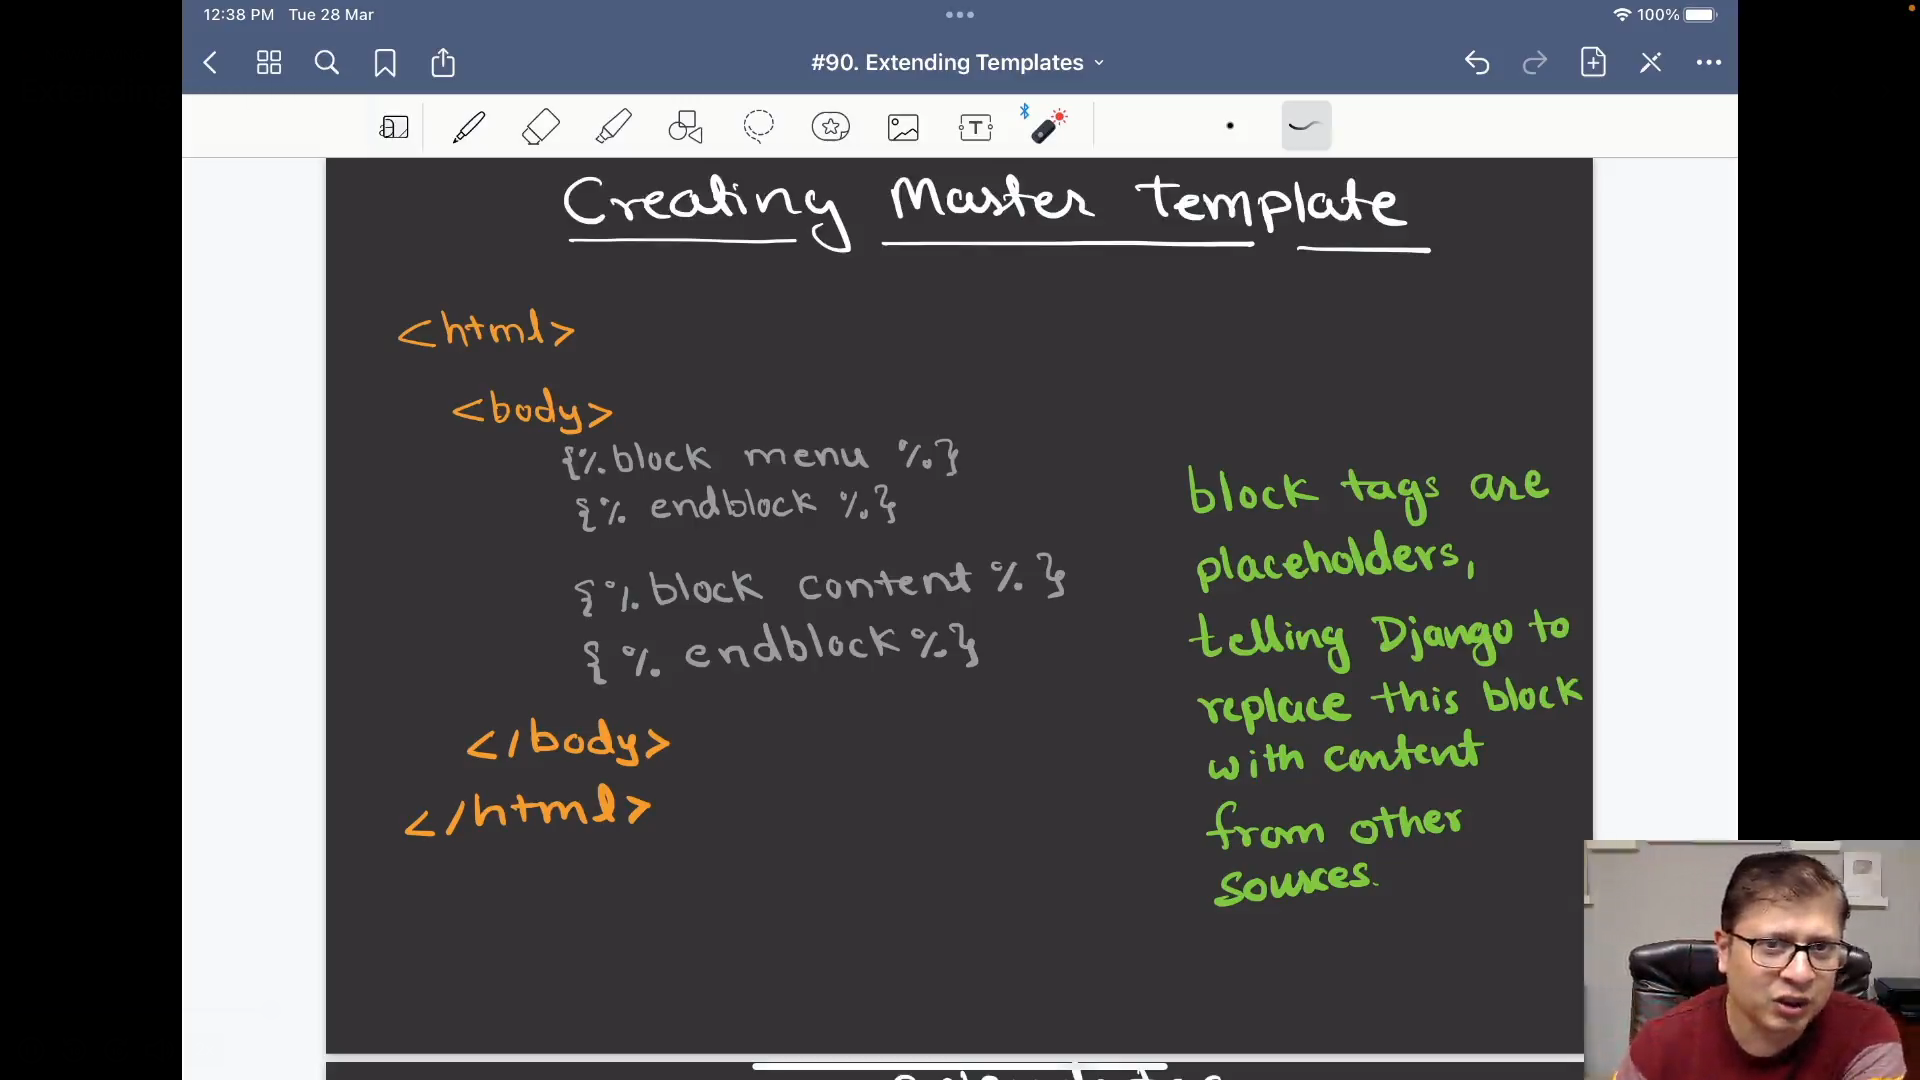 12:38 PM Tue 28 Mar
100%
#90. Extending Templates
Creating Master Template
<html>
<body>
{% block menu %}
{% endblock %}
{% block content % }
{ % endblock %}
</body>
</html>
block tags are
placeholders,
telling Django to
replace this block
with content
from other
sources.